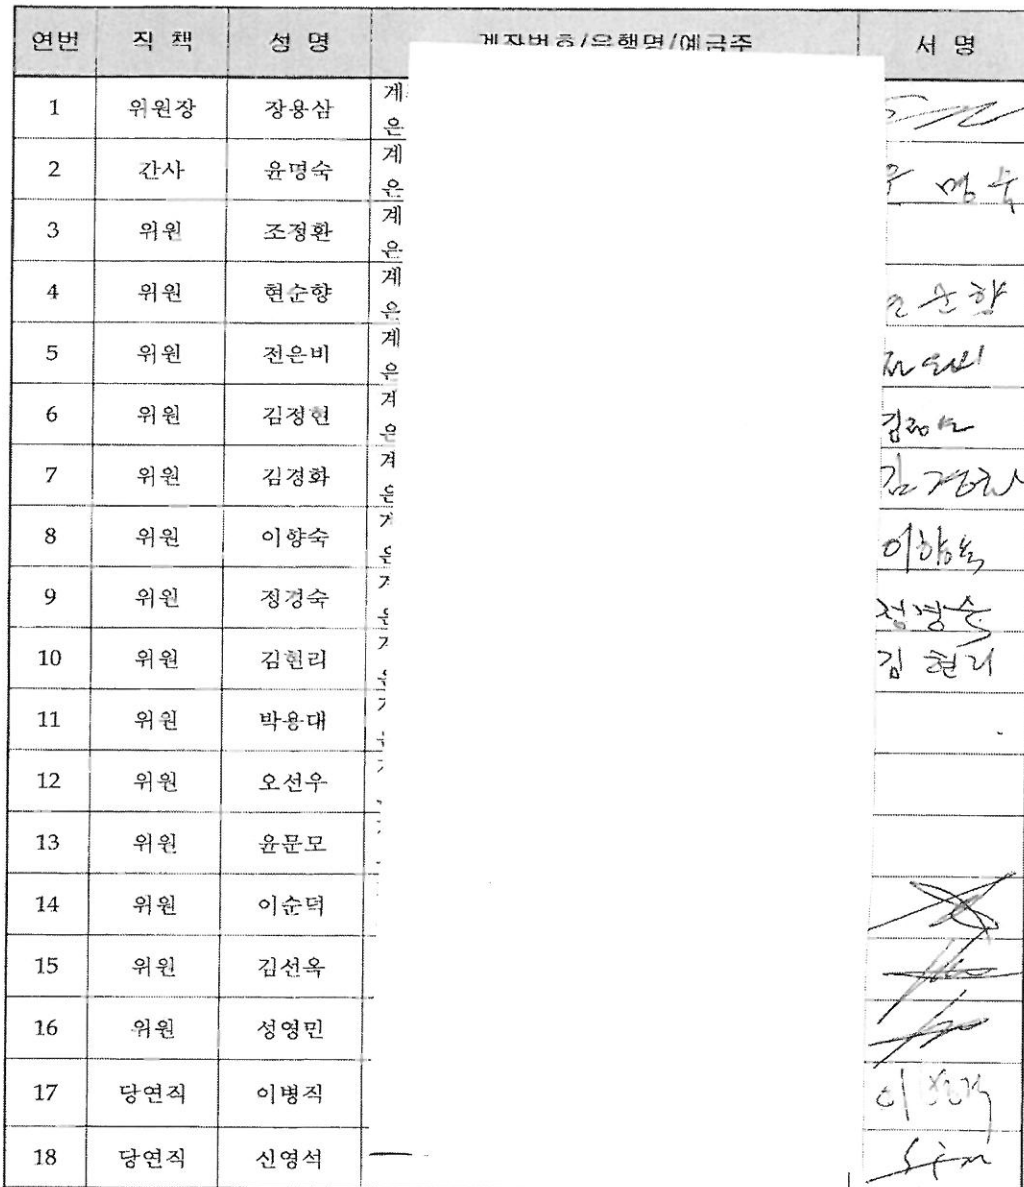 연번 직 책 성 명 계좌번호/은행명/예금주 서 명
1 위원장 장용삼 계
은
2 간사 윤명숙 계 명숙
은
3 위원 조정환 계
은
4 위원 현순향 계 순향
은
5 위원 전은비 계 전은비
은
6 위원 김정현 김정현
은
7 위원 김경화 김경화
은
8 위원 이향숙 이향숙
9 위원 정경숙 정경숙
10 위원 김현리 김현리
11 위원 박용대
12 위원 오선우
13 위원 윤문모
14 위원 이순덕
15 위원 김선옥
16 위원 성영민
17 당연직 이병직 이병직
18 당연직 신영석